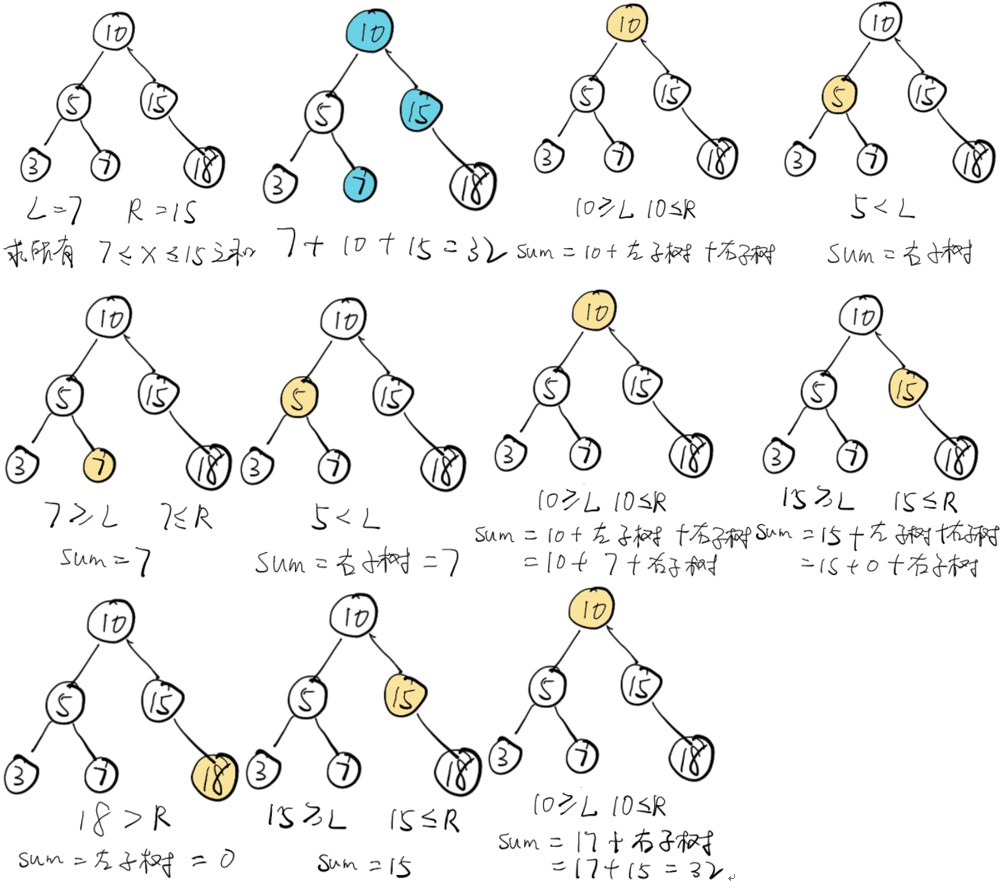 10
5 15
3 7 18
L=7 R=15
求所有 7≤x≤15之和
10
5 15
3 7 18
7+10+15=32
10
5 15
3 7 18
10≥L 10≤R
sum=10+左子树+右子树
10
5 15
3 7 18
5<L
sum=右子树
10
5 15
3 7 18
7≥L 7≤R
sum=7
10
5 15
3 7 18
5<L
sum=右子树=7
10
5 15
3 7 18
10≥L 10≤R
sum=10+左子树+右子树
=10+7+右子树
10
5 15
3 7 18
15≥L 15≤R
sum=15+左子树+右子树
=15+0+右子树
10
5 15
3 7 18
18>R
sum=左子树=0
10
5 15
3 7 18
15≥L 15≤R
sum=15
10
5 15
3 7 18
10≥L 10≤R
sum=17+右子树
=17+15=32